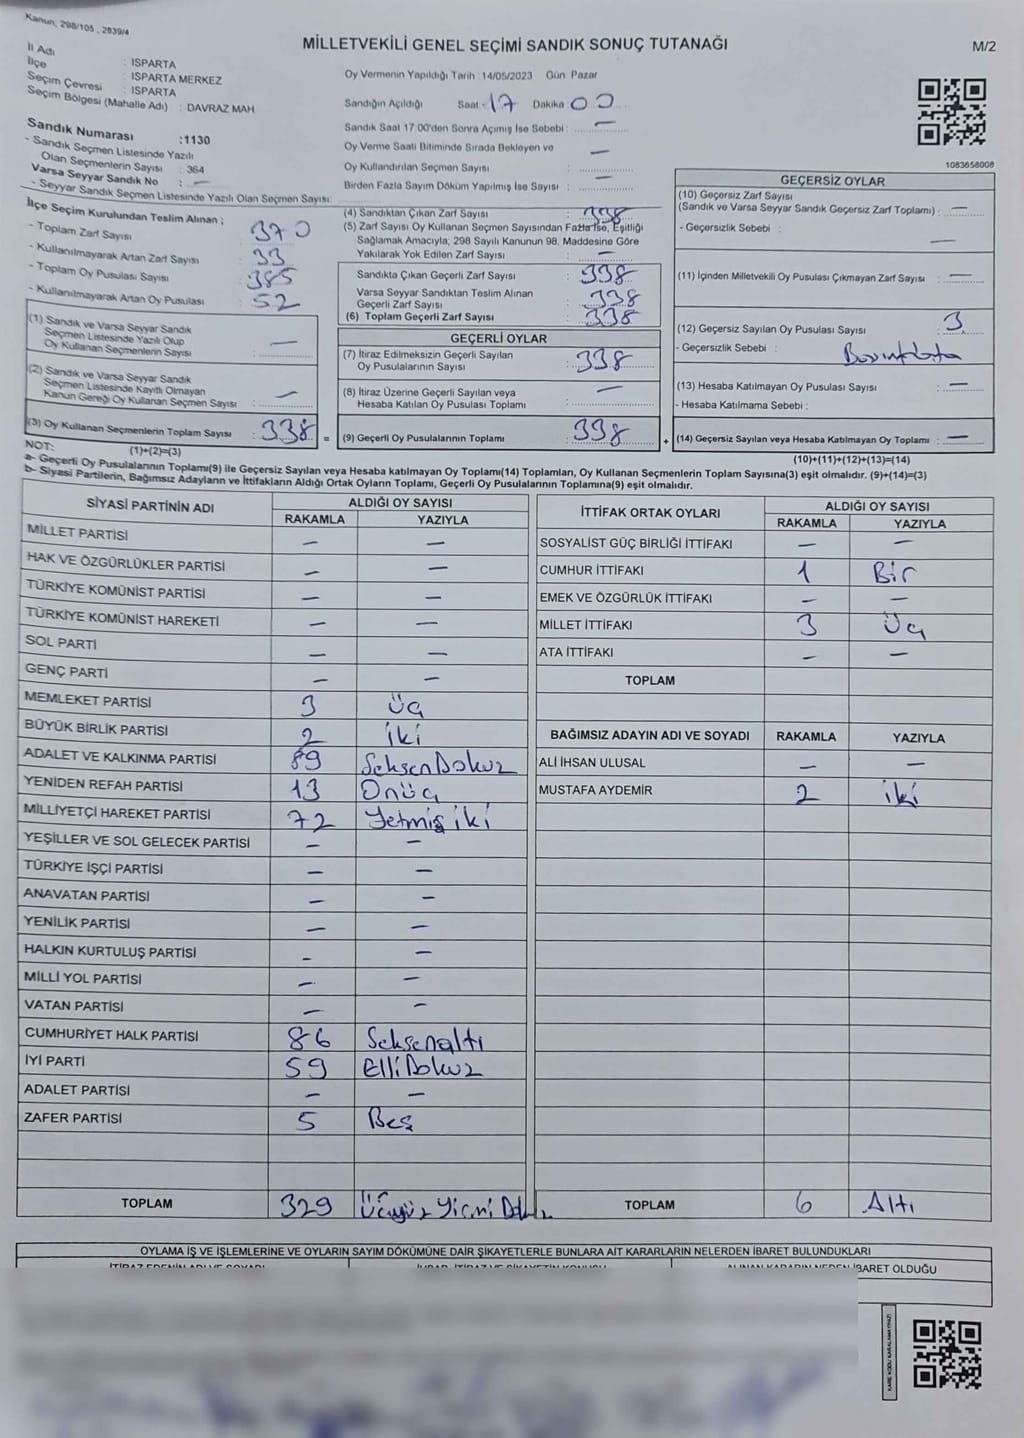 Kanun; 298/105 , 2839/4
MİLLETVEKİLİ GENEL SEÇİMİ SANDIK SONUÇ TUTANAĞI
M/2
İl Adı : ISPARTA
İlçe : ISPARTA MERKEZ
Seçim Çevresi : ISPARTA
Seçim Bölgesi (Mahalle Adı) : DAVRAZ MAH
Oy Vermenin Yapıldığı Tarih : 14/05/2023 Gün: Pazar
Sandığın Açıldığı Saat : 17 Dakika 00
Sandık Saat 17:00'den Sonra Açımış İse Sebebi : —
Oy Verme Saati Bitiminde Sırada Bekleyen ve
Oy Kullandırılan Seçmen Sayısı —
Birden Fazla Sayım Döküm Yapılmış İse Sayısı : —
1083658008
Sandık Numarası :1130
- Sandık Seçmen Listesinde Yazılı
Olan Seçmenlerin Sayısı : 364
Varsa Seyyar Sandık No : —
- Seyyar Sandık Seçmen Listesinde Yazılı Olan Seçmen Sayısı:
İlçe Seçim Kurulundan Teslim Alınan ;
- Toplam Zarf Sayısı 370
- Kullanılmayarak Artan Zarf Sayısı 33
- Toplam Oy Pusulası Sayısı 385
- Kullanılmayarak Artan Oy Pusulası 52
(1) Sandık ve Varsa Seyyar Sandık
Seçmen Listesinde Yazılı Olup
Oy Kullanan Seçmenlerin Sayısı : —
(2) Sandık ve Varsa Seyyar Sandık
Seçmen Listesinde Kayıtlı Olmayan
Kanun Gereği Oy Kullanan Seçmen Sayısı : —
(3) Oy Kullanan Seçmenlerin Toplam Sayısı : 338 =
(1)+(2)=(3)
(4) Sandıktan Çıkan Zarf Sayısı : 338
(5) Zarf Sayısı Oy Kullanan Seçmen Sayısından Fazla İse, Eşitliği
Sağlamak Amacıyla; 298 Sayılı Kanunun 98. Maddesine Göre
Yakılarak Yok Edilen Zarf Sayısı : —
Sandıkta Çıkan Geçerli Zarf Sayısı : 338
Varsa Seyyar Sandıktan Teslim Alınan
Geçerli Zarf Sayısı : 338
(6) Toplam Geçerli Zarf Sayısı : 338
GEÇERLİ OYLAR
(7) İtiraz Edilmeksizin Geçerli Sayılan
Oy Pusulalarının Sayısı : 338
(8) İtiraz Üzerine Geçerli Sayılan veya
Hesaba Katılan Oy Pusulası Toplamı : —
(9) Geçerli Oy Pusulalarının Toplamı : 338 +
GEÇERSİZ OYLAR
(10) Geçersiz Zarf Sayısı
(Sandık ve Varsa Seyyar Sandık Geçersiz Zarf Toplamı) : —
- Geçersizlik Sebebi : —
(11) İçinden Milletvekili Oy Pusulası Çıkmayan Zarf Sayısı : —
(12) Geçersiz Sayılan Oy Pusulası Sayısı : 3
- Geçersizlik Sebebi :
(13) Hesaba Katılmayan Oy Pusulası Sayısı : —
- Hesaba Katılmama Sebebi :
(14) Geçersiz Sayılan veya Hesaba Katılmayan Oy Toplamı : —
(10)+(11)+(12)+(13)=(14)
NOT:
a- Geçerli Oy Pusulalarının Toplamı(9) ile Geçersiz Sayılan veya Hesaba katılmayan Oy Toplamı(14) Toplamları, Oy Kullanan Seçmenlerin Toplam Sayısına(3) eşit olmalıdır. (9)+(14)=(3)
b- Siyasi Partilerin, Bağımsız Adayların ve İttifakların Aldığı Ortak Oyların Toplamı, Geçerli Oy Pusulalarının Toplamına(9) eşit olmalıdır.
SİYASİ PARTİNİN ADI ALDIĞI OY SAYISI
RAKAMLA YAZIYLA
MİLLET PARTİSİ — —
HAK VE ÖZGÜRLÜKLER PARTİSİ — —
TÜRKİYE KOMÜNİST PARTİSİ — —
TÜRKİYE KOMÜNİST HAREKETİ — —
SOL PARTİ — —
GENÇ PARTİ — —
MEMLEKET PARTİSİ 3 Üç
BÜYÜK BİRLİK PARTİSİ 2 iki
ADALET VE KALKINMA PARTİSİ 89 SeksenDokuz
YENİDEN REFAH PARTİSİ 13 Onüç
MİLLİYETÇİ HAREKET PARTİSİ 72 Yetmiş iki
YEŞİLLER VE SOL GELECEK PARTİSİ — —
TÜRKİYE İŞÇİ PARTİSİ — —
ANAVATAN PARTİSİ — —
YENİLİK PARTİSİ — —
HALKIN KURTULUŞ PARTİSİ - —
MİLLİ YOL PARTİSİ — —
VATAN PARTİSİ — —
CUMHURİYET HALK PARTİSİ 86 Seksenaltı
İYİ PARTİ 59 ElliDokuz
ADALET PARTİSİ — —
ZAFER PARTİSİ 5 Beş
TOPLAM 329 Üçyüz Yirmi Dokuz
İTTİFAK ORTAK OYLARI ALDIĞI OY SAYISI
RAKAMLA YAZIYLA
SOSYALİST GÜÇ BİRLİĞİ İTTİFAKI — —
CUMHUR İTTİFAKI 1 Bir
EMEK VE ÖZGÜRLÜK İTTİFAKI — —
MİLLET İTTİFAKI 3 Üç
ATA İTTİFAKI — —
TOPLAM
BAĞIMSIZ ADAYIN ADI VE SOYADI RAKAMLA YAZIYLA
ALİ İHSAN ULUSAL — —
MUSTAFA AYDEMİR 2 iki
TOPLAM 6 Altı
OYLAMA İŞ VE İŞLEMLERİNE VE OYLARIN SAYIM DÖKÜMÜNE DAİR ŞİKAYETLERLE BUNLARA AİT KARARLARIN NELERDEN İBARET BULUNDUKLARI
İBARET OLDUĞU